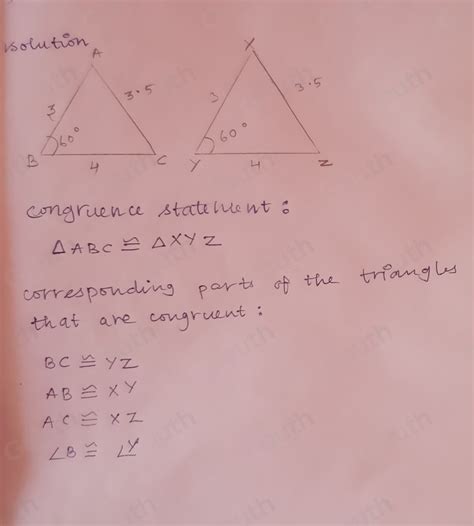 solution
A
X
3
3.5
3
3.5
60°
60°
B
4
C
Y
4
Z
congruence statement :
△ABC ≅ △XYZ
corresponding parts of the triangles
that are congruent :
BC ≅ YZ
AB ≅ XY
AC ≅ XZ
∠B ≅ ∠Y